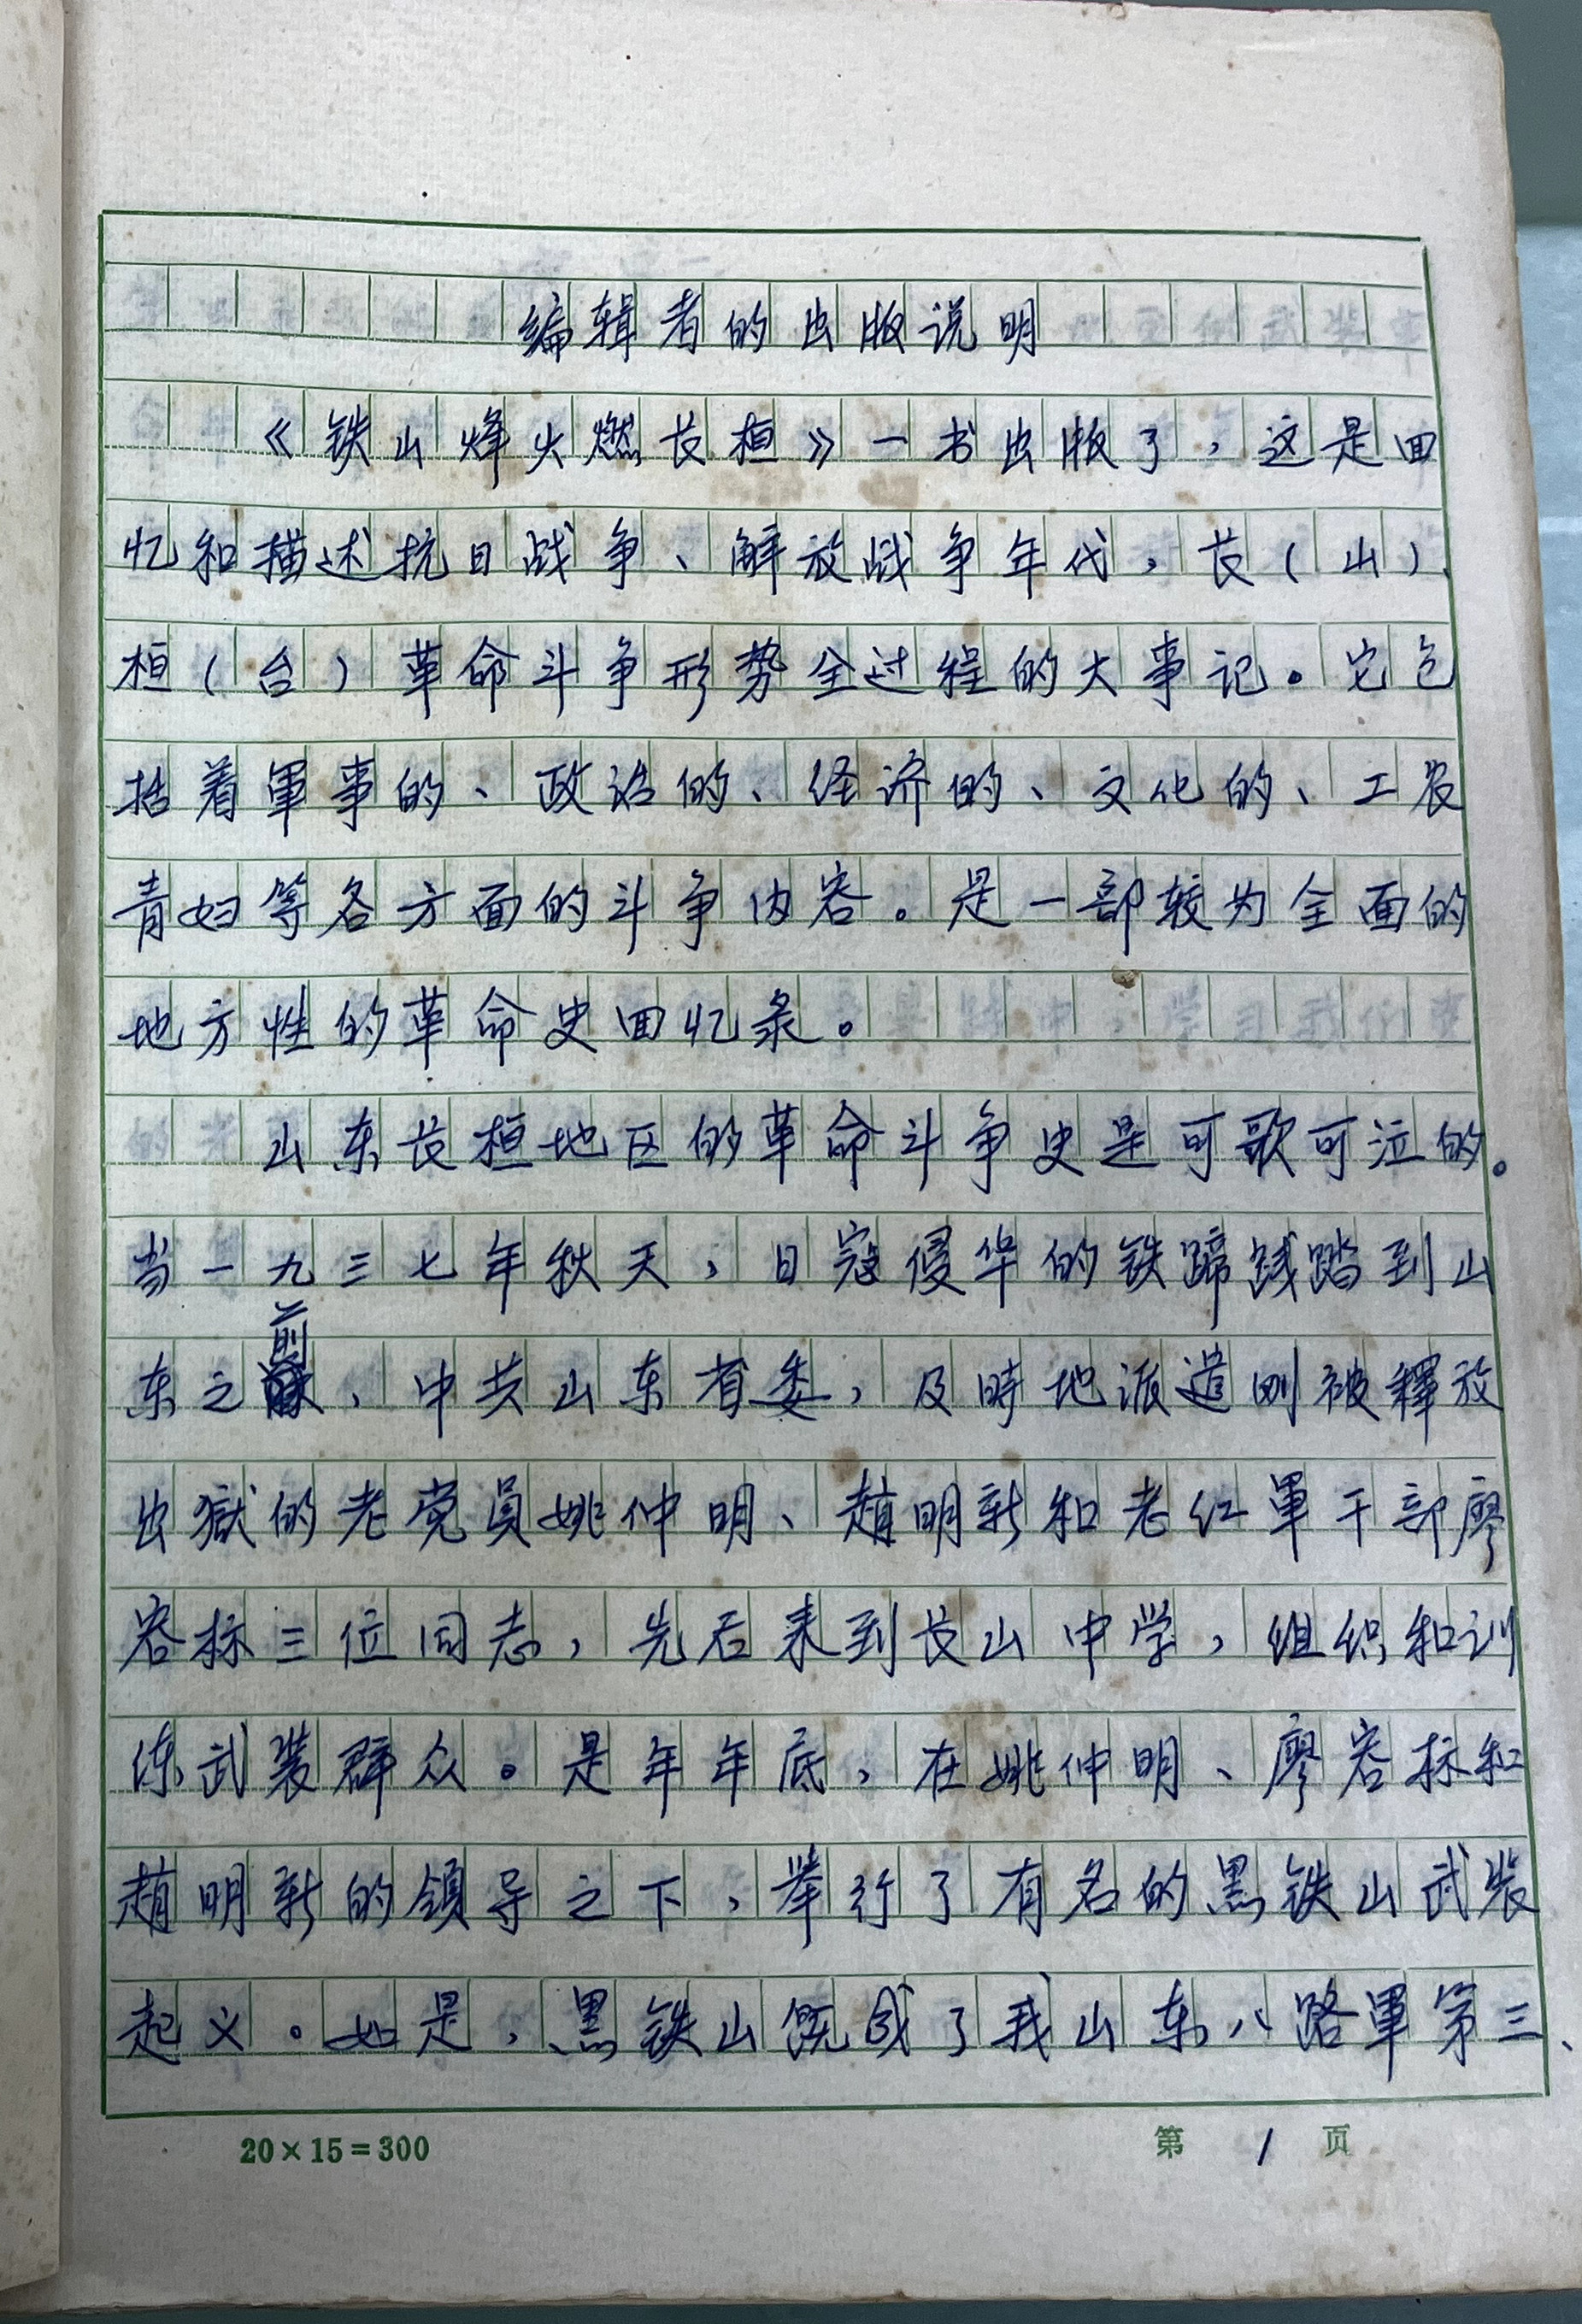 编辑者的出版说明
《铁山烽火燃长桓》一书出版了，这是回
忆和描述抗日战争、解放战争年代，长（山）、
桓（台）革命斗争形势全过程的大事记。它包
括着軍事的、政治的、经济的、文化的、工农
青妇等各方面的斗争内容。是一部较为全面的
地方性的革命史回忆录。
山东长桓地区的革命斗争史是可歌可泣的。
当一九三七年秋天，日寇侵华的铁蹄践踏到山
前
东之，中共山东省委，及時地派遣刚被釋放
出獄的老党员姚仲明、趙明新和老红軍干部廖
容标三位同志，先后来到长山中学，组织和训
练武装群众。是年年底，在姚仲明、廖容标和
趙明新的領导之下，举行了有名的黑铁山武装
起义。如是，黑铁山既成了我山东八路軍第三、
20×15=300
第 1 页